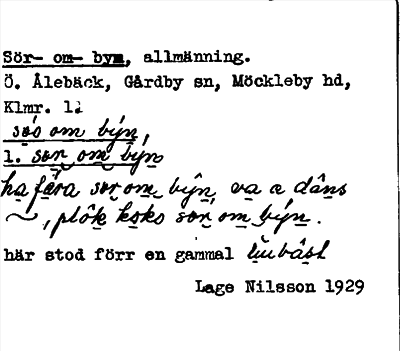 Sör- om- bym, allmänning.
Ö. Ålebäck, Gårdby sn, Möckleby hd,
Klmr. l.
sös om býn,
1. sor om býn
ha fára sor om bŷn va a dâns
~, plôk koko sor om býn.
här stod förr en gammal
Lage Nilsson 1929